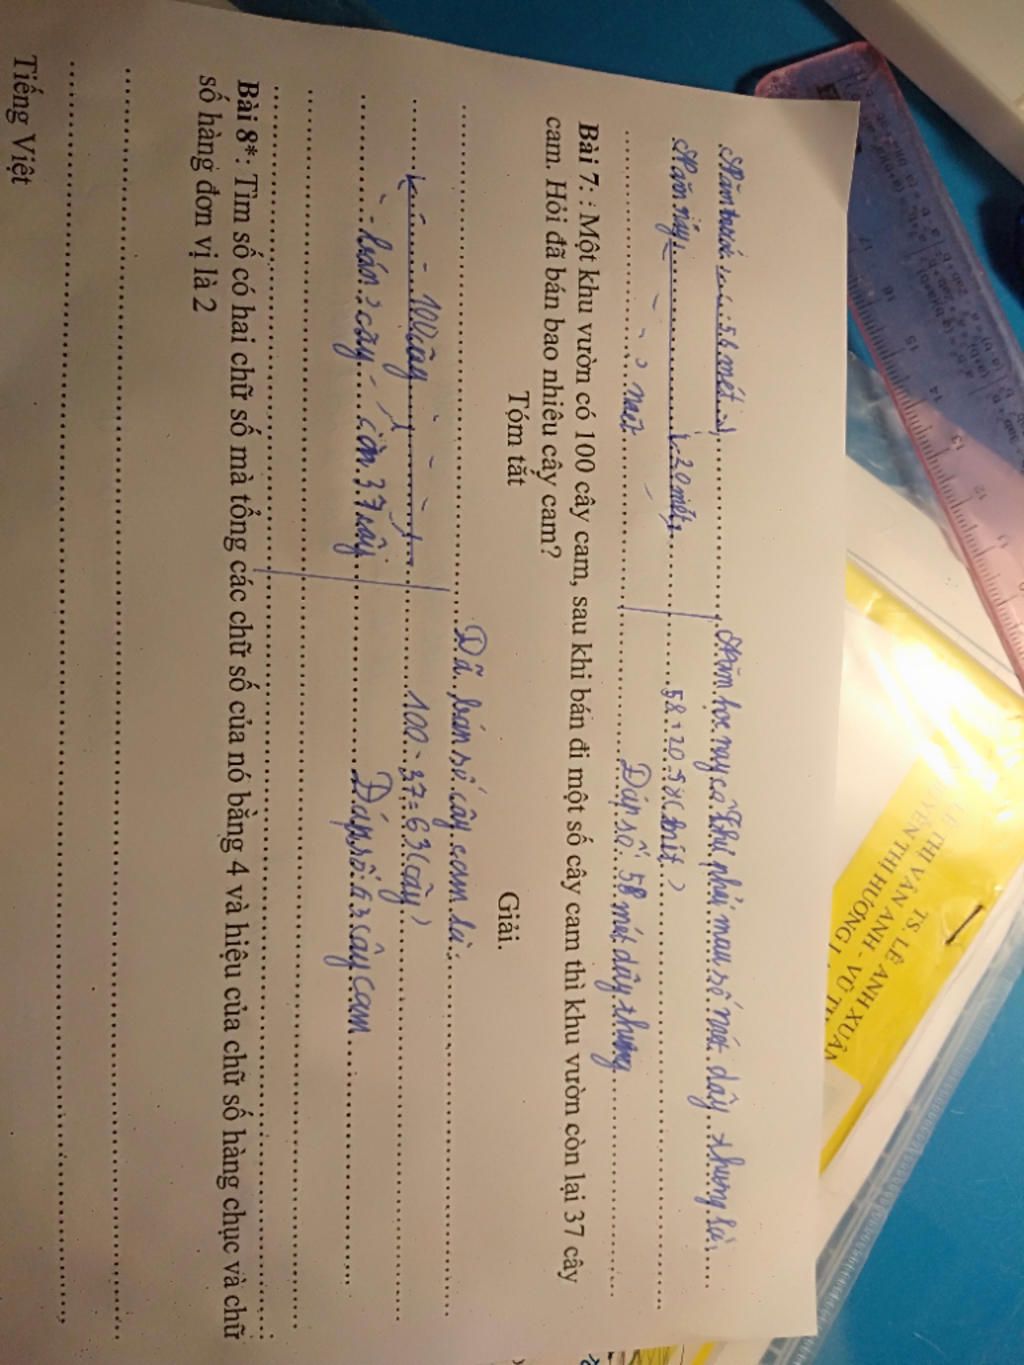 Năm trước 56 mét
Năm nay 20 mét
? mét
Năm học nay cô Thu phải mau số mét dây thưng là:
(mét)
Đáp số: 58 mét dây thưng
Bài 7: : Một khu vườn có 100 cây cam, sau khi bán đi một số cây cam thì khu vườn còn lại 37 cây
cam. Hỏi đã bán bao nhiêu cây cam?
Tóm tắt
Giải.
100 cây
bán ? cây còn 37 cây
Đã bán số cây cam là:
100 - 37 = 63 (cây)
Đáp số: 63 cây cam
Bài 8*. Tìm số có hai chữ số mà tổng các chữ số của nó bằng 4 và hiệu của chữ số hàng chục và chữ
số hàng đơn vị là 2
Tiếng Việt
TS. LÊ ANH XUÂN
LÊ THỊ VÂN ANH - VŨ
THỊ HƯƠNG
18
17
16
15
14
13
12
11